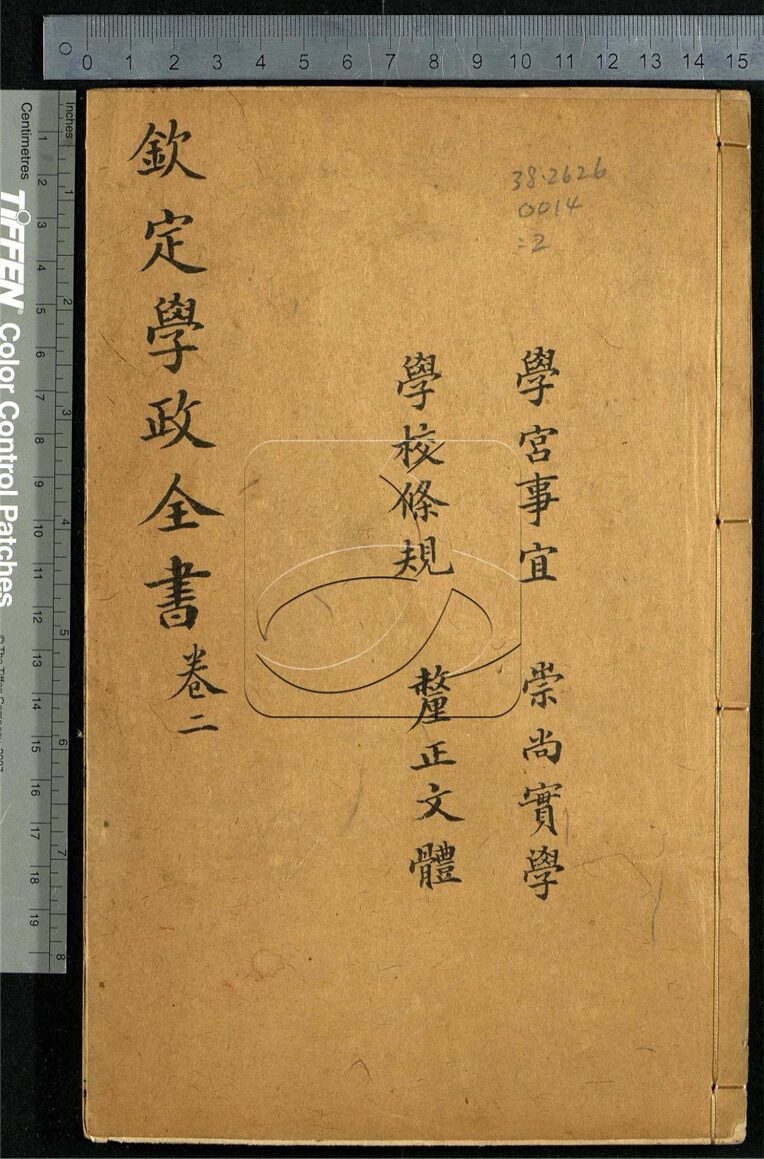 0 1 2 3 4 5 6 7 8 9 10 11 12 13 14 15
38.2626
0014
:2
學宮事宜 崇尚實學
學校條規 釐正文體
欽定學政全書 卷二
Inches 1 2 3 4 5 6 7 8
Centimetres 1 2 3 4 5 6 7 8 9 10 11 12 13 14 15 16 17 18 19
TIFFEN® Color Control Patches